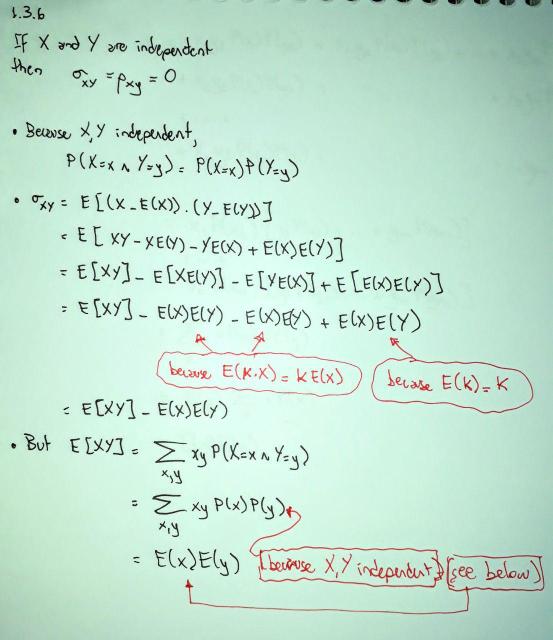 1.3.6
If X and Y are independent
then σxy = ρxy = 0
• Because X,Y independent,
P(X=x ∧ Y=y) = P(X=x)P(Y=y)
• σxy = E[(X-E(X)).(Y-E(Y))]
= E[XY-XE(Y)-YE(X)+E(X)E(Y)]
= E[XY]-E[XE(Y)]-E[YE(X)]+E[E(X)E(Y)]
= E[XY]-E(X)E(Y)-E(X)E(Y)+E(X)E(Y)
because E(K.X)=KE(X)
because E(K)=K
= E[XY]-E(X)E(Y)
• But E[XY] = Σ xy P(X=x ∧ Y=y)
x,y
= Σ xy P(x)P(y)
x,y
= E(x)E(y) (because X,Y independent) (see below)